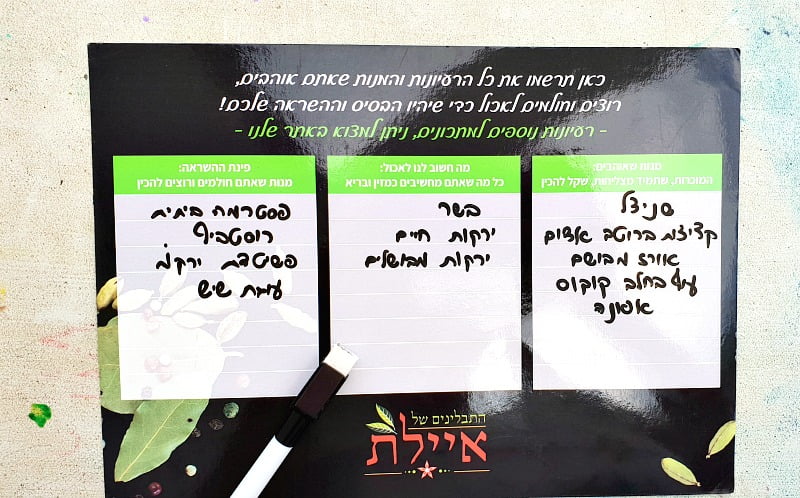 כאן תרשמו את כל הרעיונות והמנות שאתם אוהבים,
רוצים וחולמים לאכול כדי שיהיו הבסיס וההשראה שלכם!
- רעיונות נוספים למתכונים, ניתן למצוא באתר שלנו -
מנות שאוהבים:
המוכרות, שתמיד מצליחות, שקל להכין
שניצל
קציצות ברוטב אדום
אורז מבושם
עוף בחלב קוקוס
אפונה
מה חשוב לנו לאכול:
כל מה שאתם מחשיבים כמזין ובריא
בשר
ירקות חיים
ירקות מבושלים
פינת ההשראה:
מנות שאתם חולמים ורוצים להכין
פסטרמה ביתית
רוסטביף
פשטידת ירקות
עוגת שיש
התבלינים של
איילת